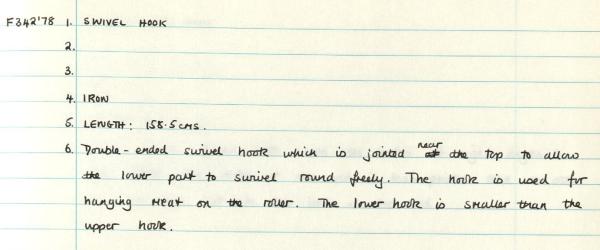 F342'78 1. SWIVEL HOOK
2.
3.
4. IRON
5. LENGTH: 158.5 CMS.
6. Double-ended swivel hook which is jointed near the top to allow
the lower part to swivel round freely. The hook is used for
hanging meat on the roller. The lower hook is smaller than the
upper hook.